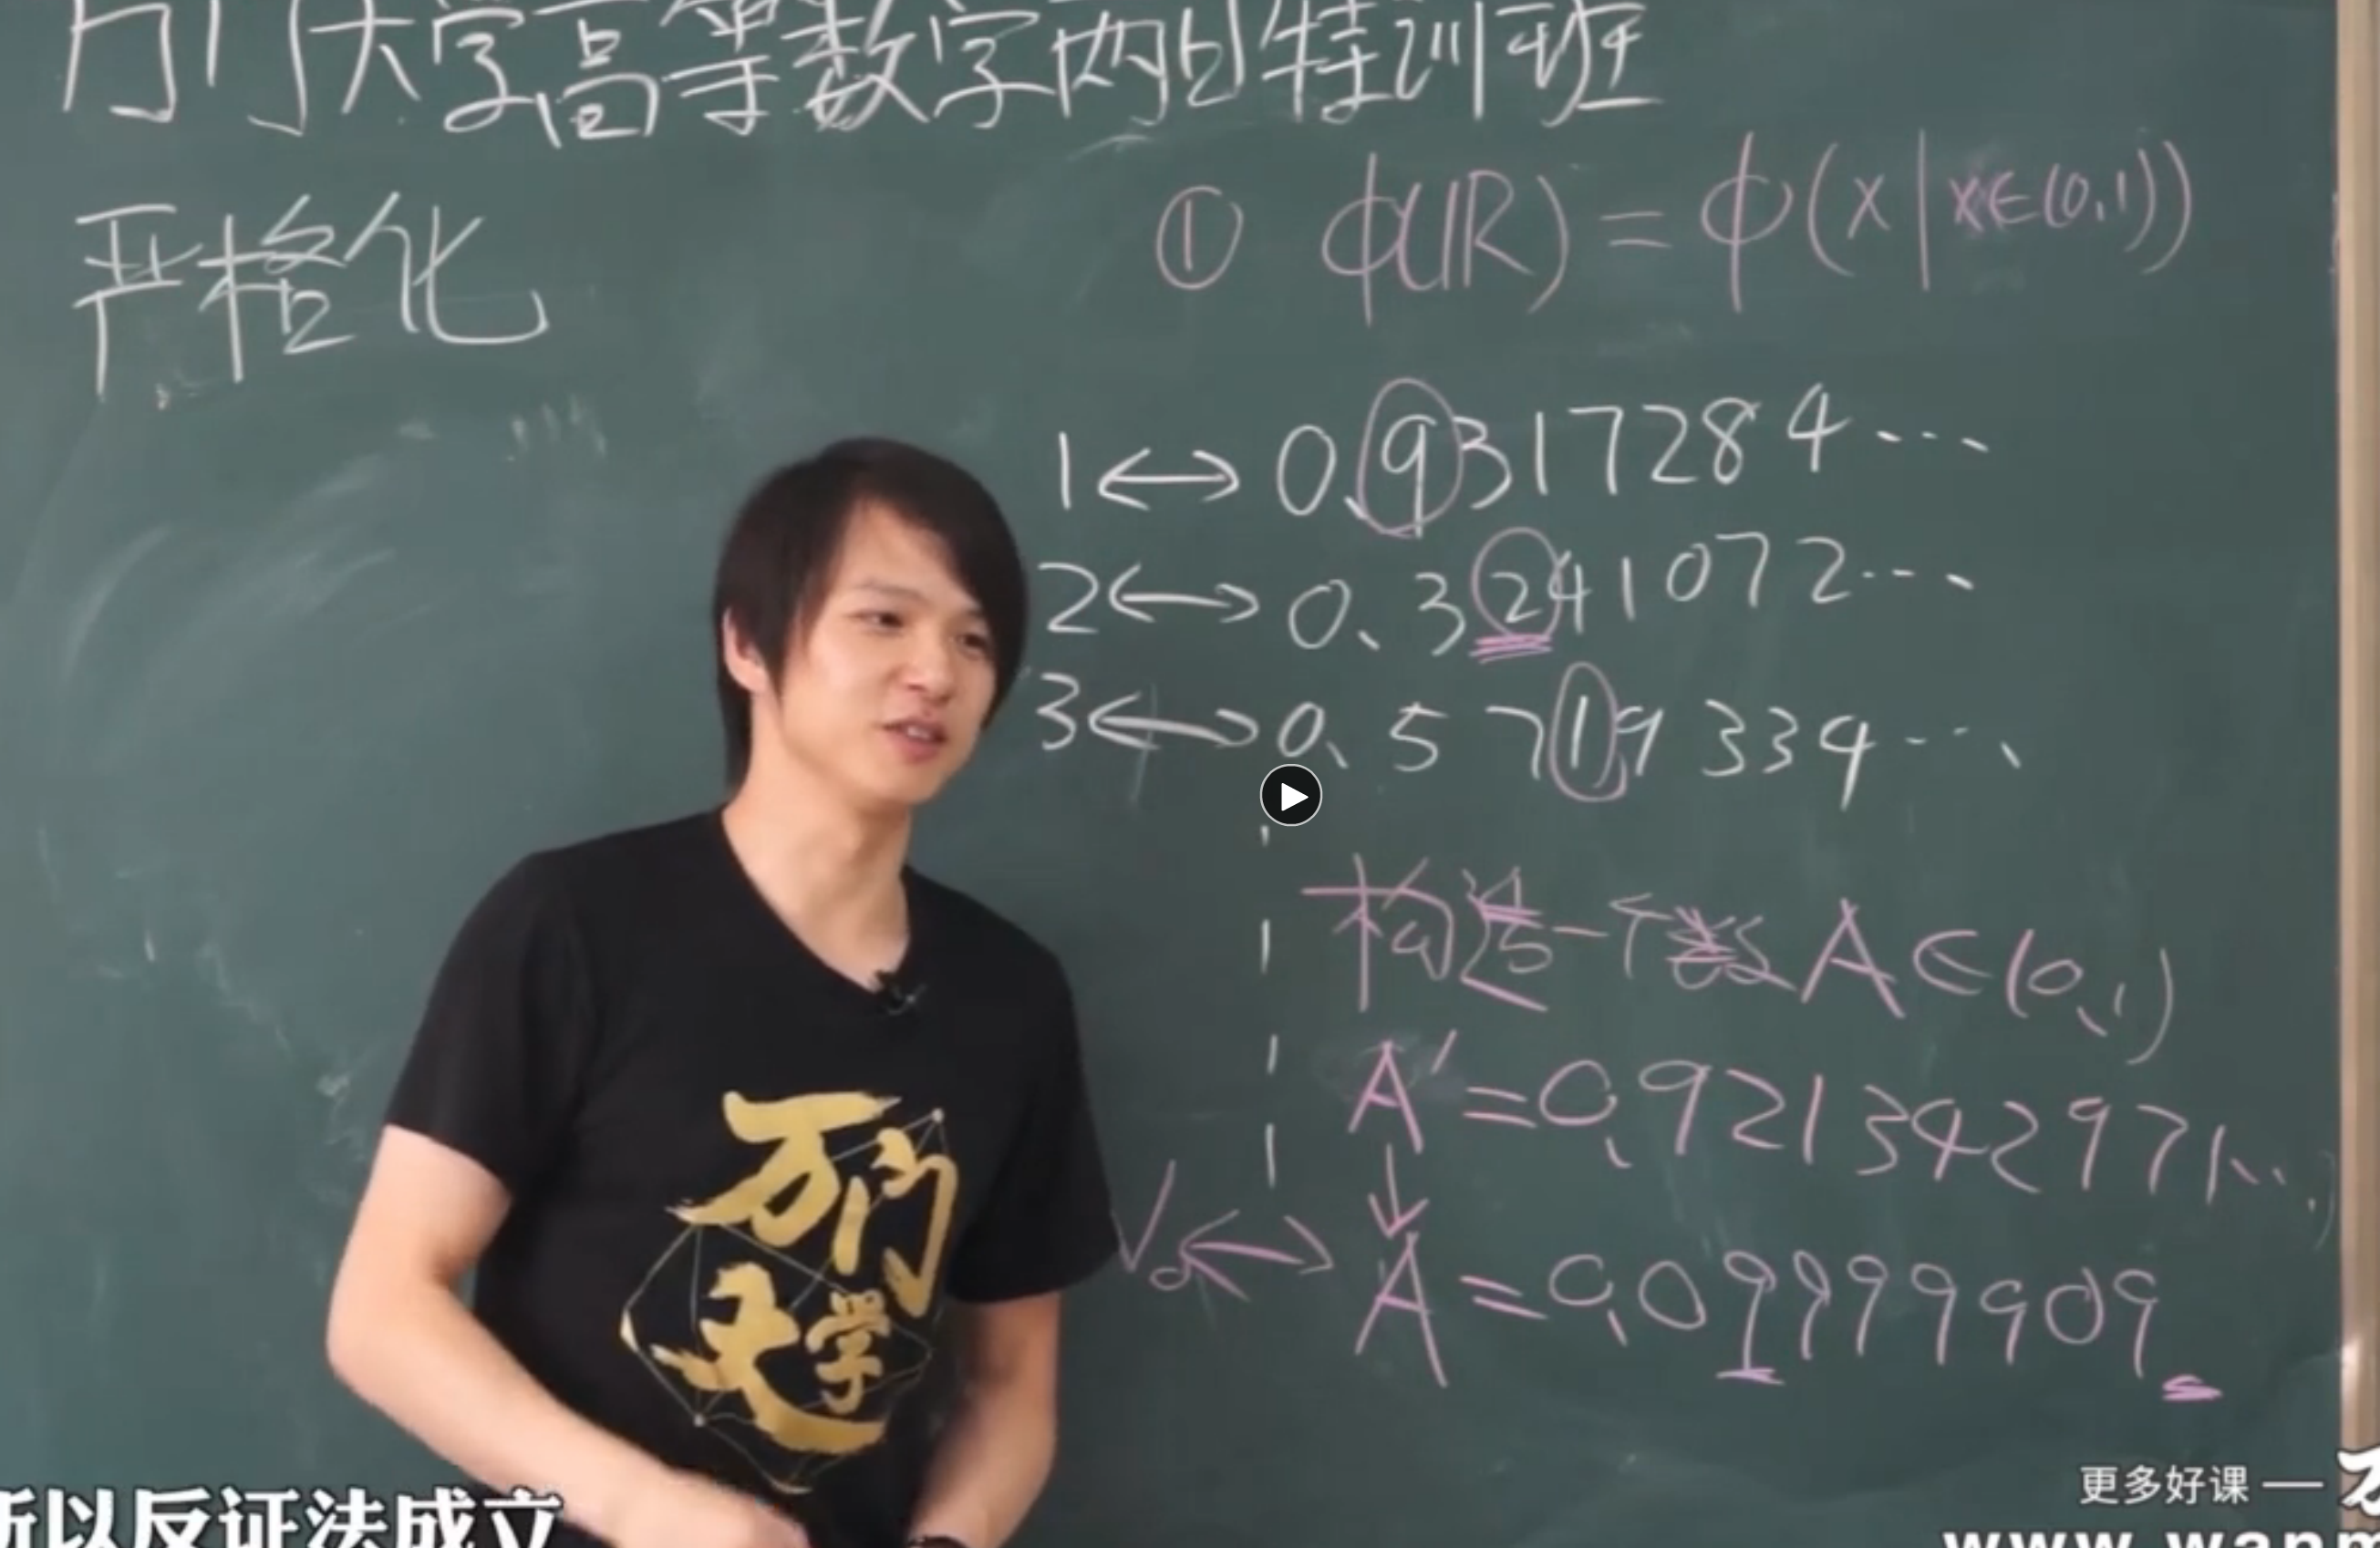 万门大学高等数学两日特训班
严格化
① φ(ℝ) = φ(x | x∈(0,1))
1 ↔ 0.9317284...
2 ↔ 0.3241072...
3 ↔ 0.5719334...
构造一个数A∈(0,1)
A' = 0.921342971...
↓
↔ A = 0.09999909
万门
大学
所以反证法成立
更多好课 — 万
www.wanm